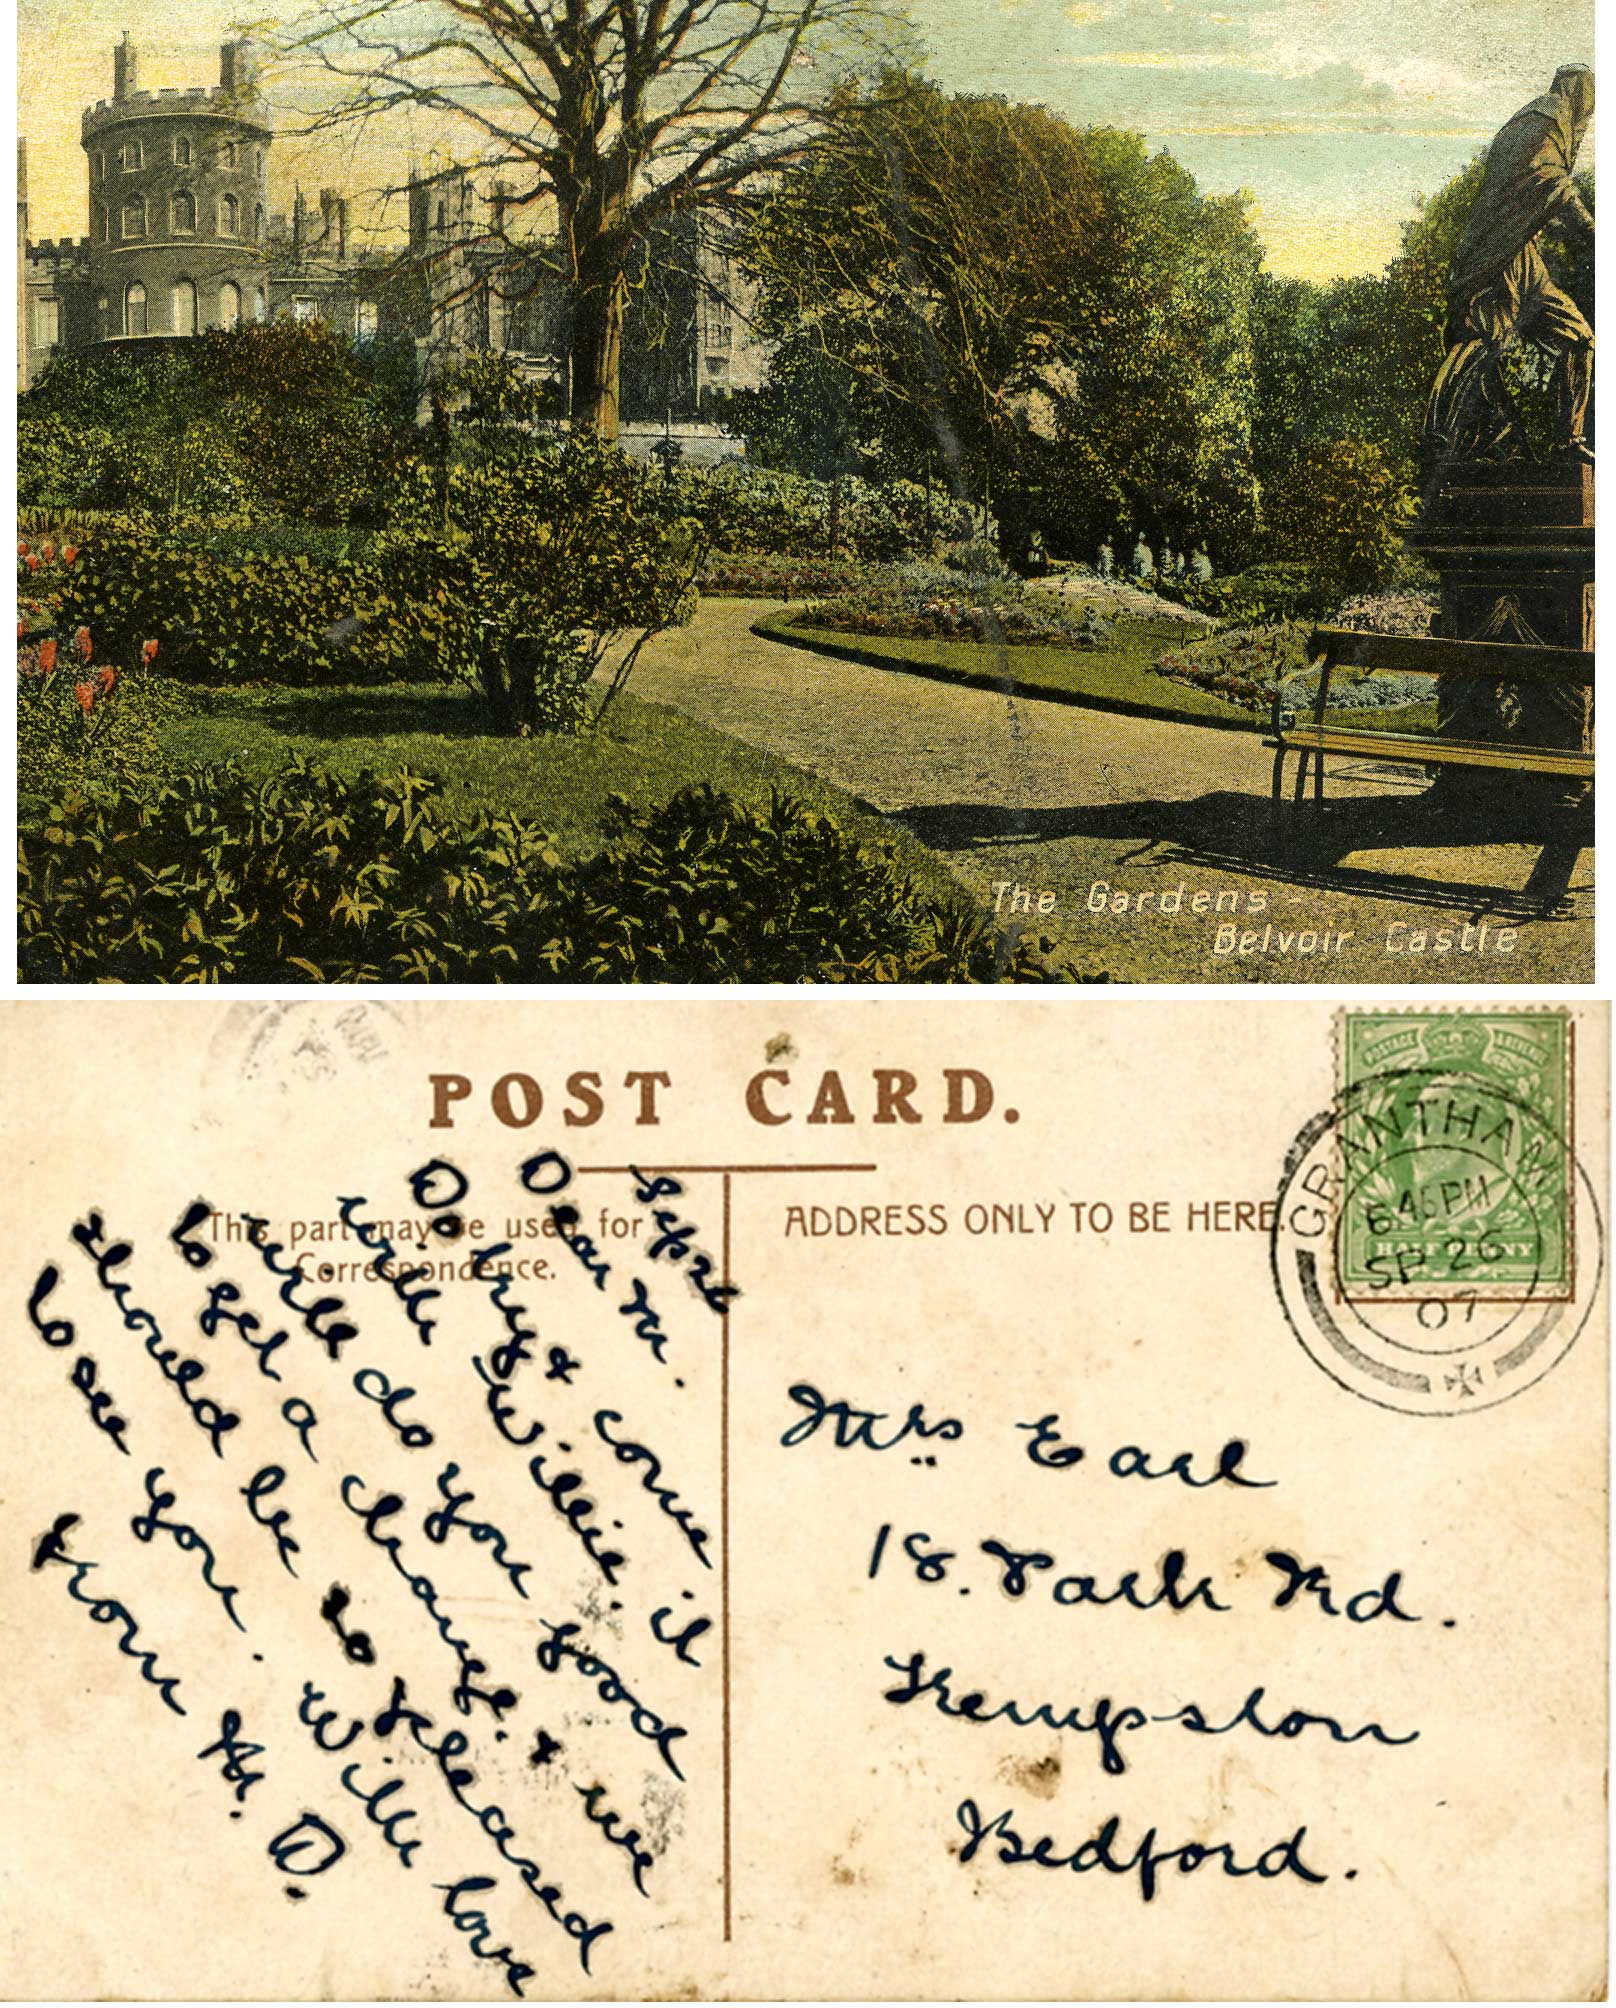 The Gardens -
Belvoir Castle
POST CARD.
This part may be used for
Correspondence.
ADDRESS ONLY TO BE HERE.
POSTAGE
HALFPENNY
GRANTHAM
6.45PM
SP 26
07
Sep 26
Dear M.
Do try & come
with Willie. it
will do you good
to get a change. & we
should be so pleased
to see you. With love
from D.
Mrs Earl
18. Park Rd.
Kempston
Bedford.